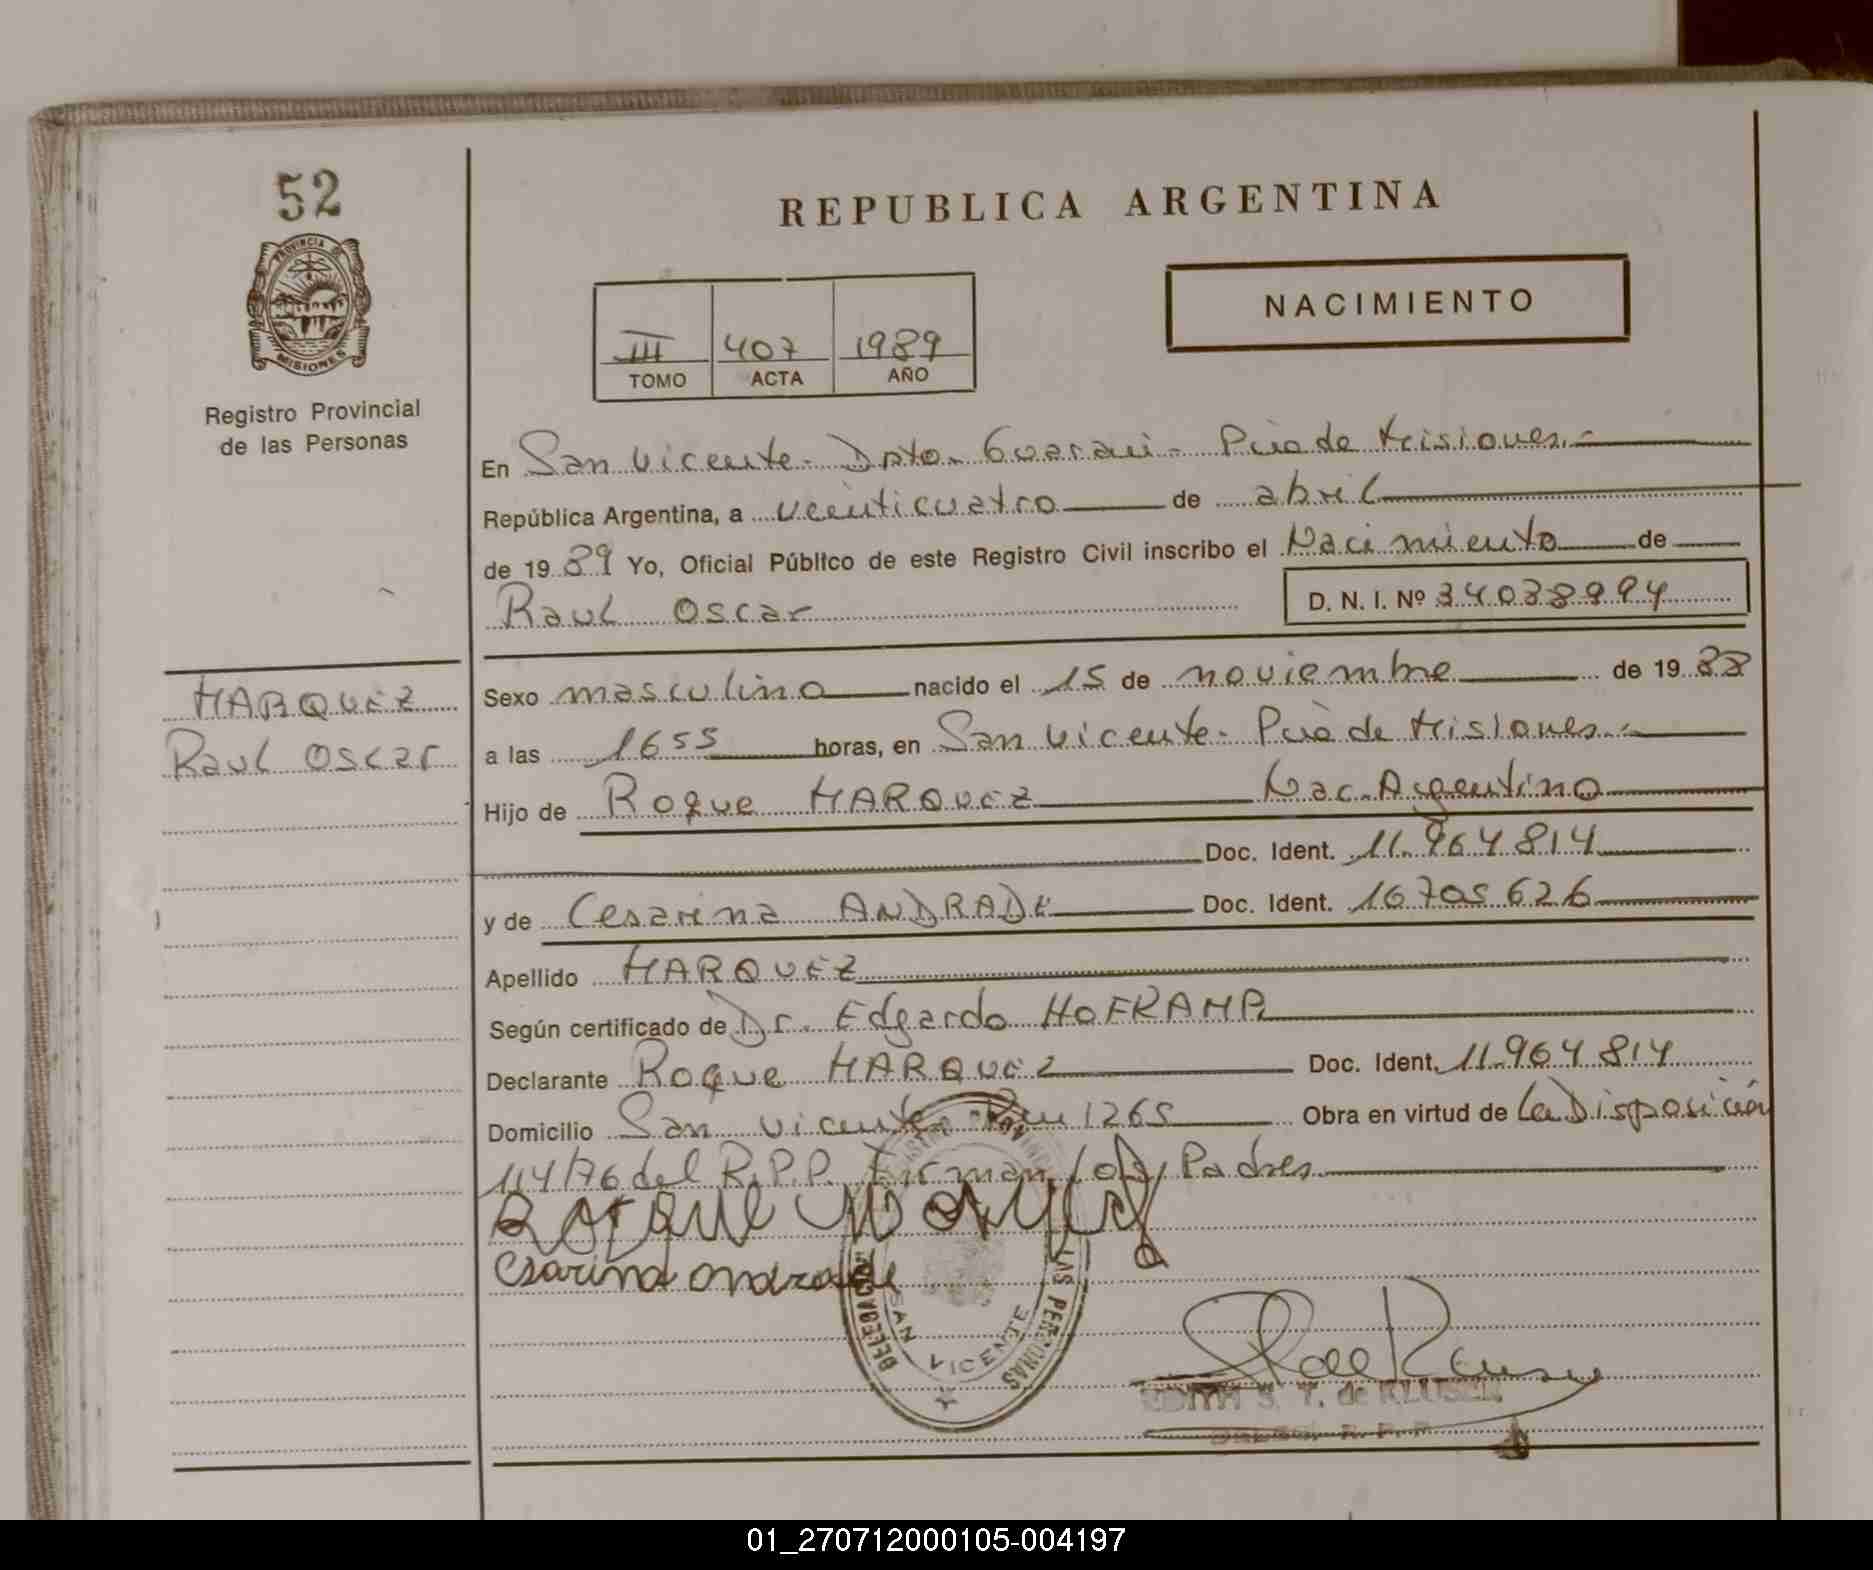 52
PROVINCIA DE
MISIONES
Registro Provincial
de las Personas
MARQUEZ
Raul Oscar
REPUBLICA ARGENTINA
NACIMIENTO
III 407 1989
TOMO ACTA AÑO
En San Vicente - Dpto. Guarani - Pcia de Misiones.-
República Argentina, a veinticuatro de abril
de 1989 Yo, Oficial Público de este Registro Civil inscribo el Nacimiento de
Raul Oscar D. N. I. Nº 34038994
Sexo masculino nacido el 15 de noviembre de 1988
a las 1655 horas, en San Vicente - Pcia de Misiones.-
Hijo de Roque MARQUEZ Nac. Argentino
Doc. Ident. 11.964.814
y de Cesarina ANDRADE Doc. Ident. 16705626
Apellido MARQUEZ
Según certificado de Dr. Edgardo HOFRAMP.
Declarante Roque MARQUEZ Doc. Ident. 11.964.814
Domicilio San Vicente 1265 Obra en virtud de la Disposición
114/76 del R.P.P. Firman los Padres
Roque
Cesarina andrade
DELEGACION
LAS PERSONAS
SAN VICENTE
EDITH S. T. de KLUSEN
R. P. P.
01_270712000105-004197